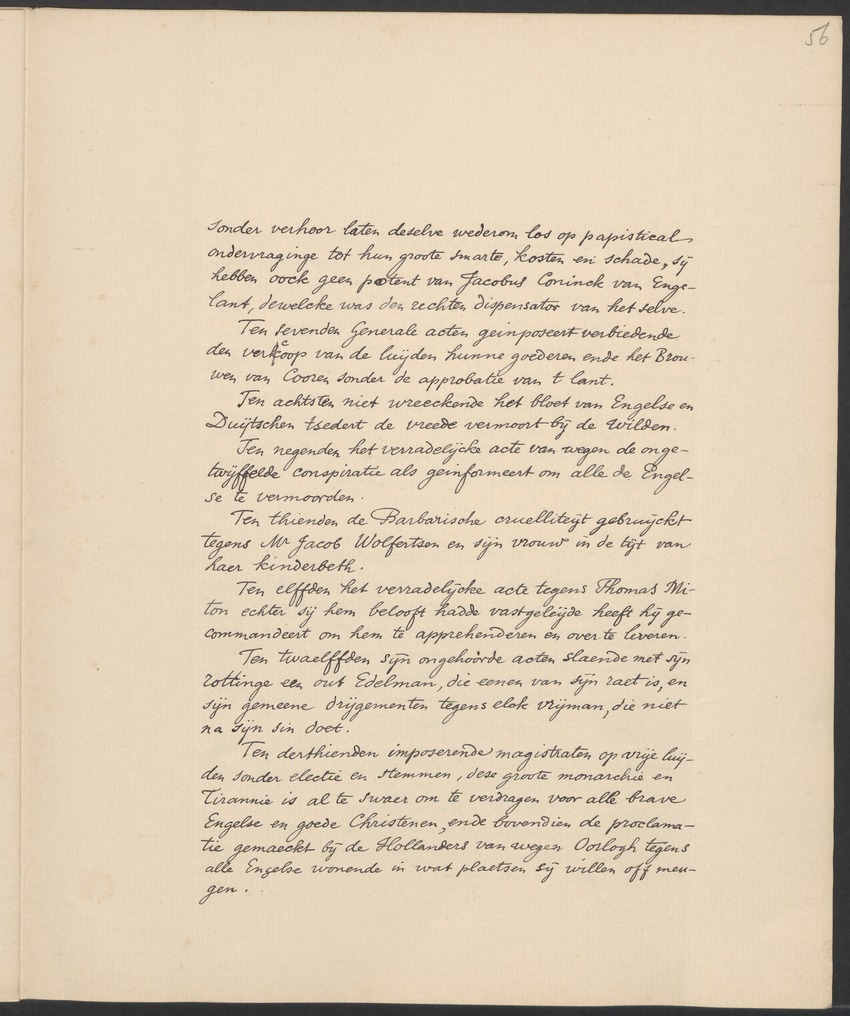 56
sonder verhoor laten deselve wederom los op papistical
ondervraginge tot hun groote smarte, kosten en schade, sij
hebben oock geen patent van Jacobus Coninck van Enge-
lant, dewelcke was den rechten dispensator van het selve.
Ten sevenden Generale acten geinposeert verbiedende
den vercoop van de luijden hunne goederen ende het Brou-
wen van Cooren sonder de approbatie van t lant.
Ten achtsten niet wreeckende het bloet van Engelse en
Duijtschen tsedert de vreede vermoort bij de Wilden.
Ten negenden het verradelijcke acte van wegen de onge-
twijffelde conspiratie als geinformeert om alle de Engel-
se te vermoorden.
Ten thienden de Barbarische cruelliteijt gebruijckt
tegens Mr Jacob Wolfertsen en sijn vrouw in de tijt van
haer kinderbeth.
Ten elffden het verradelijcke acte tegens Thomas Mi-
ton echter sij hem belooft hadde vastgeleijde heeft hij ge-
commandeert om hem te apprehenderen en over te leveren.
Ten twaelffden sijn ongehoorde acten slaende met sijn
rottinge een out Edelman, die eenen van sijn raet is, en
sijn gemeene drijgementen tegens elck vrijman, die niet
na sijn sin doet.
Ten derthienden imposerende magistraten op vrije luij-
den sonder electie en stemmen, dese groote monarchie en
Tirannie is al te swaer om te verdragen voor alle brave
Engelse en goede Christenen, ende bovendien de proclama-
tie gemaeckt bij de Hollanders van wegen Oorlogh tegens
alle Engelse wonende in wat plaetsen sij willen off meu-
gen.